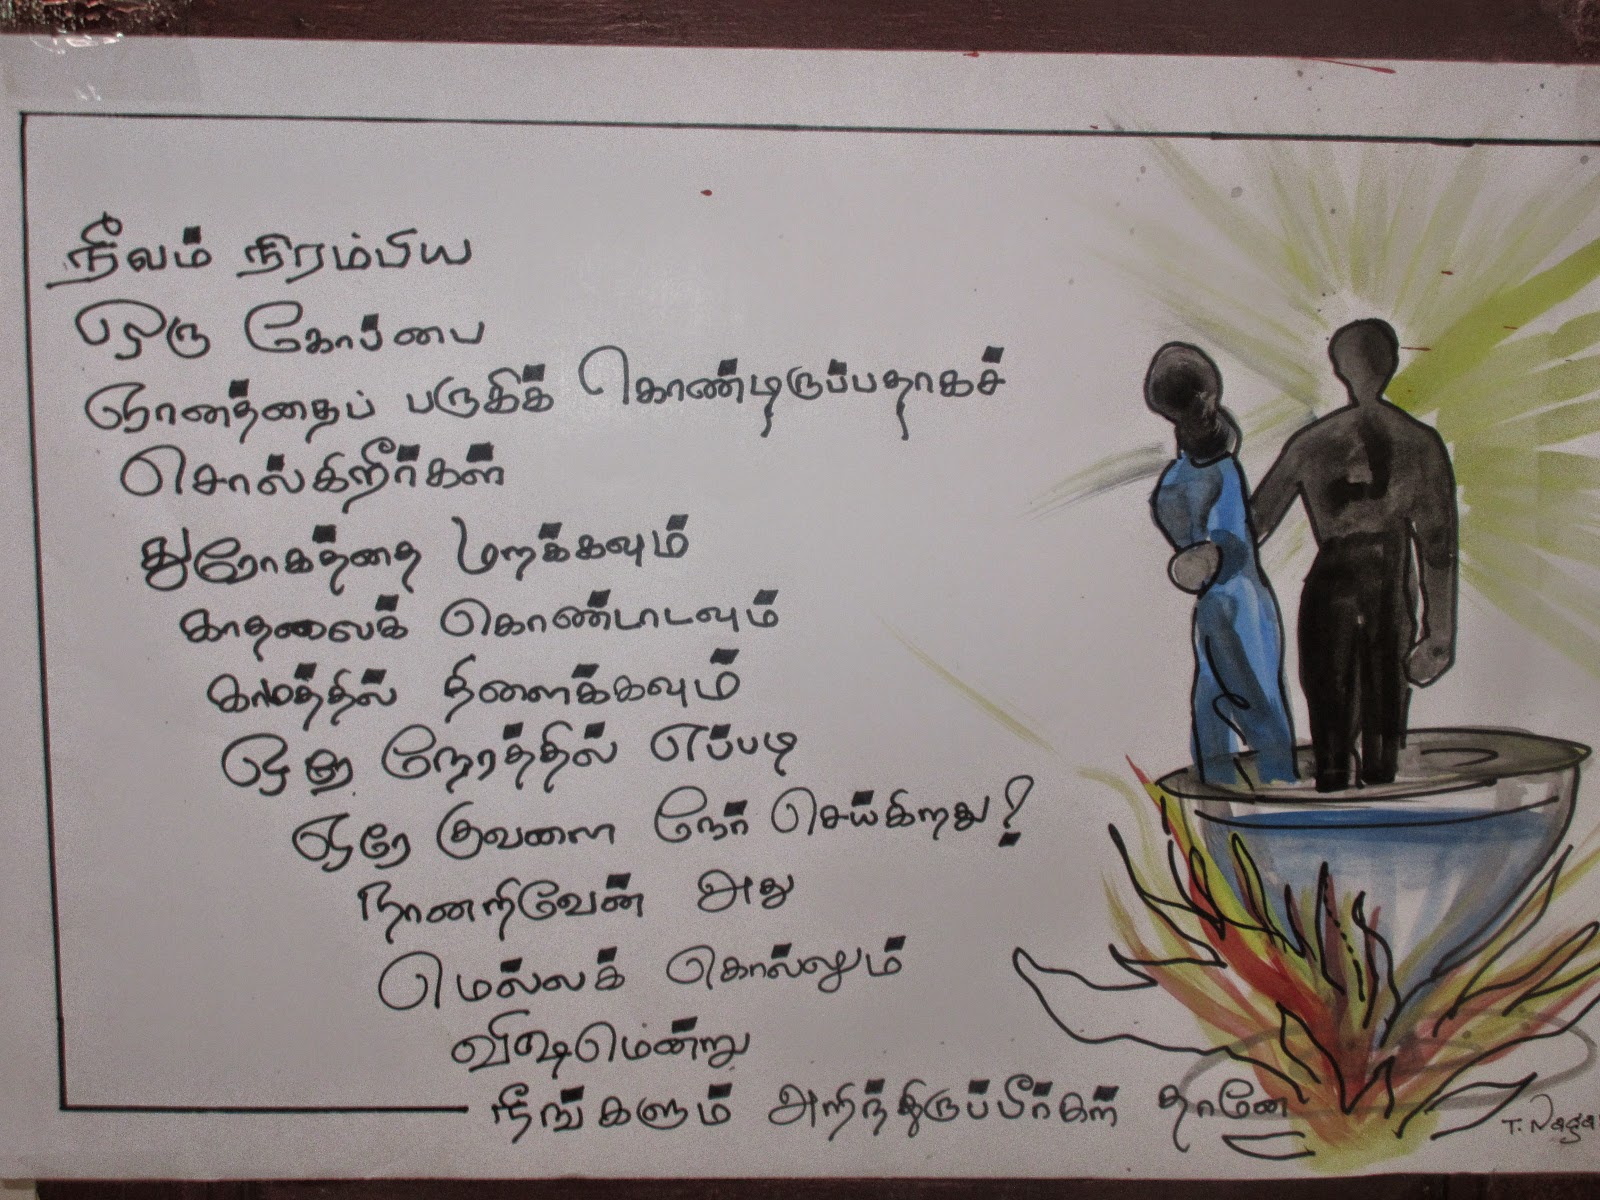 நீலம் நிரம்பிய
ஒரு கோப்பை
ஞானத்தைப் பருகிக் கொண்டிருப்பதாகச்
சொல்கிறீர்கள்
துரோகத்தை மறக்கவும்
காதலைக் கொண்டாடவும்
காமத்தில் திளைக்கவும்
ஒரு நேரத்தில் எப்படி
ஒரே குவளை நேர் செய்கிறது?
நானறிவேன் அது
மெல்லக் கொல்லும்
விஷமென்று
நீங்களும் அறிந்திருப்பீர்கள் தானே